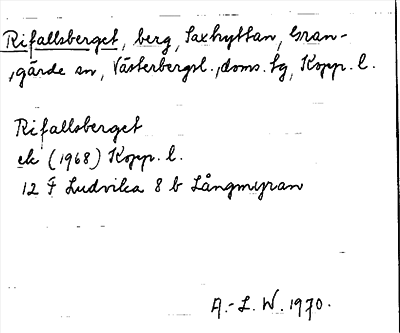 Rifallsberget, berg, Saxhyttan, Gran-
gärde sn, Västerbergsl., doms. tg, Kopp. l.
Rifallsberget
ek (1968) Kopp. l.
12 F Ludvika 8 b Långmyran
A.-L. W. 1970.